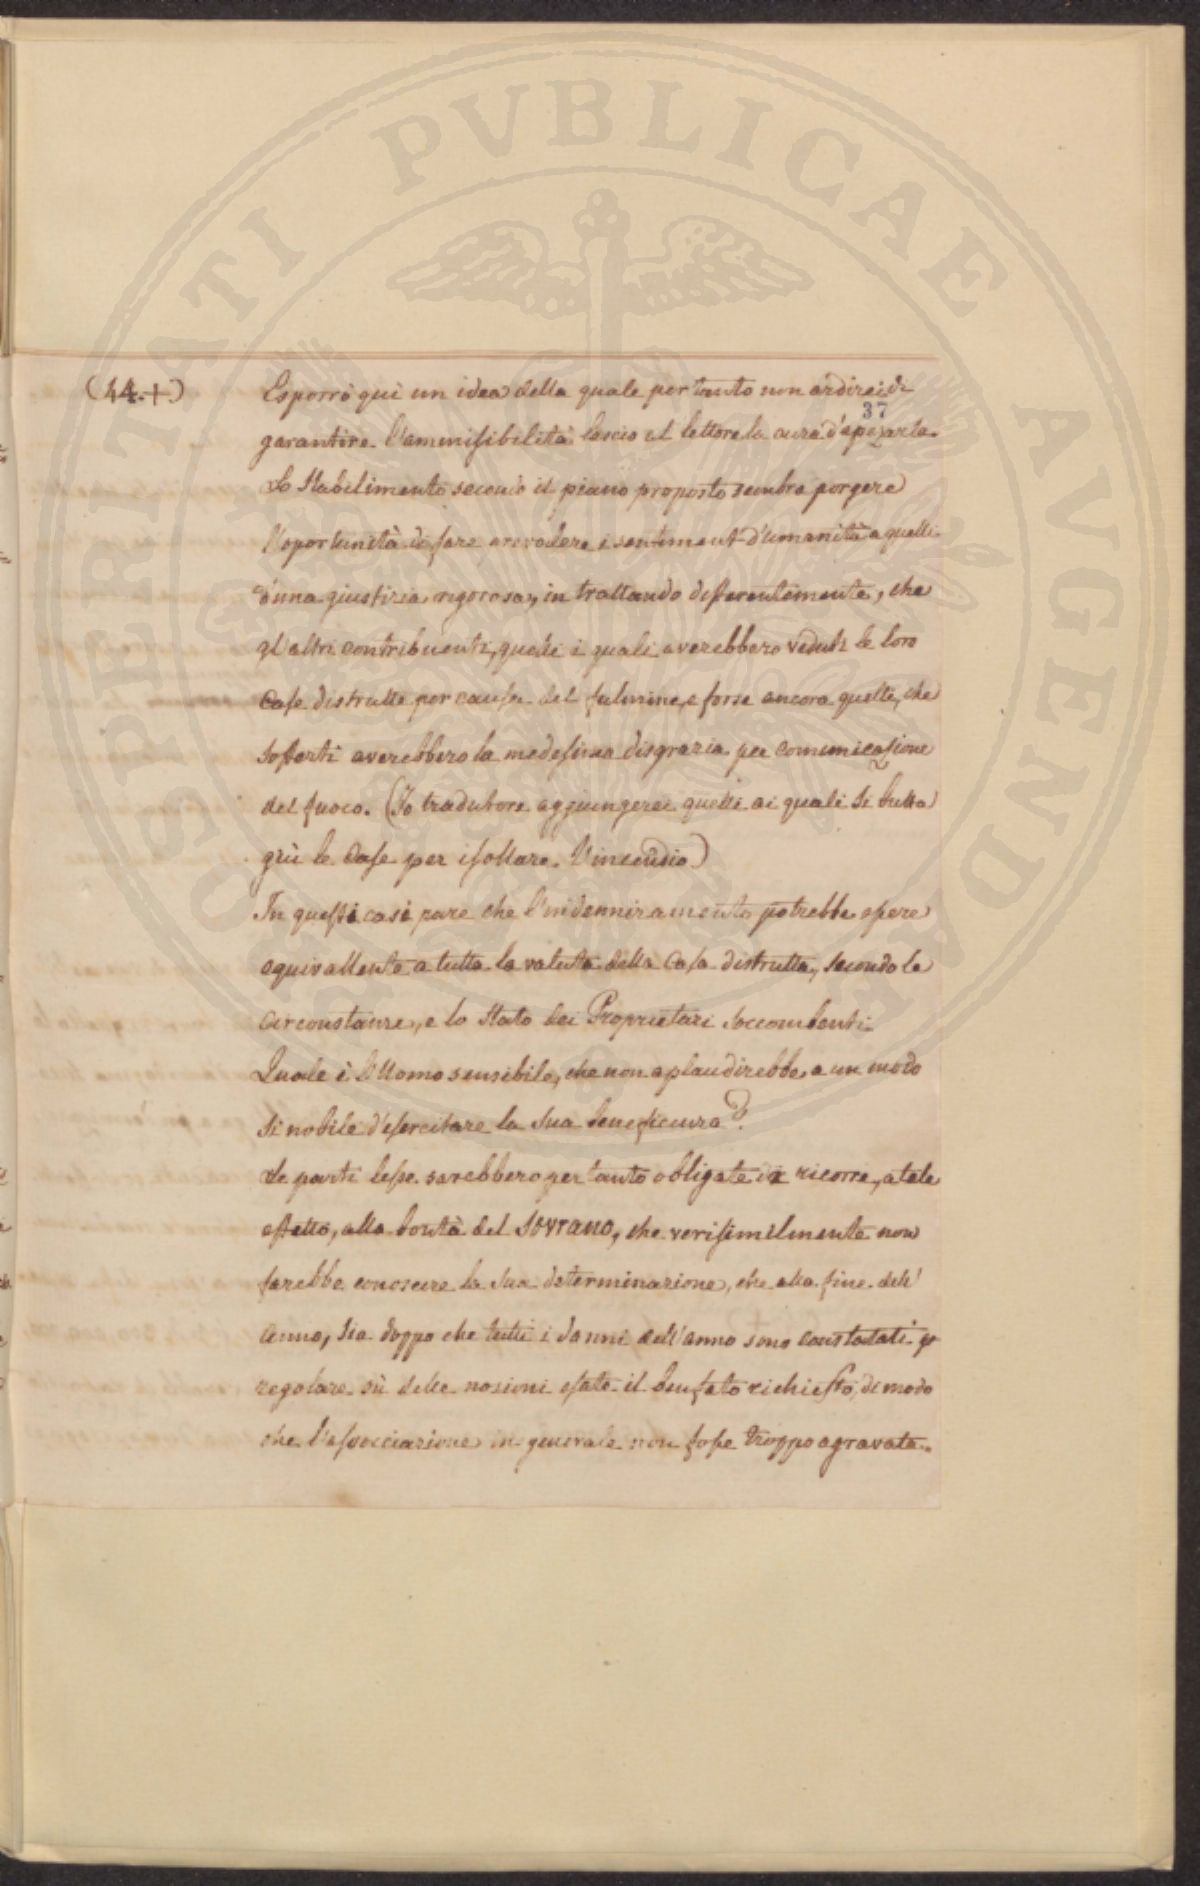 (44.+) Esporrò qui un idea della quale per tanto non ardirei di
37
garantire l'ammisibilità lascio il lettore la cura d'apozarla.
Lo Stabilimento secondo il piano proposto sembra porgere
l'oportunità di fare i sentiment d'umanità a quelli
d'una giustizia rigorosa, in trattando differentemente, che
gl'altri contribuenti, quelli i quali averebbero veduti le loro
Case distrutte per causa del fulmine, e forse ancora quelli, che
sofferti averebbero la medesima disgrazia per comunicazione
del fuoco. (Io tradutore aggiungerei quelli ai quali si butta
giù le Case per isollare l'incendio)
In questi casi pare che l'indennizamento potrebbe essere
equivallente a tutta la valuta della Casa distrutta, secondo le
circonstanze, e lo Stato dei Proprietari soccombenti.
Quale è l'Uomo sensibile, che non aplaudirebbe a un modo
si nobile d'esercitare la sua beneficenza?
Le parti lese sarebbero per tanto obligate di ricorre, a tale
effetto, alla bontà del SOVRANO, che verisimilmente non
farebbe conoscere la sua determinazione, che alla fine dell'
anno, sia doppo che tutti i danni dell'anno sono constatati p
regolare sù delle nosioni esate il benefato richiesto, di modo
che l'assocciazione in generale non fosse troppo agravata.